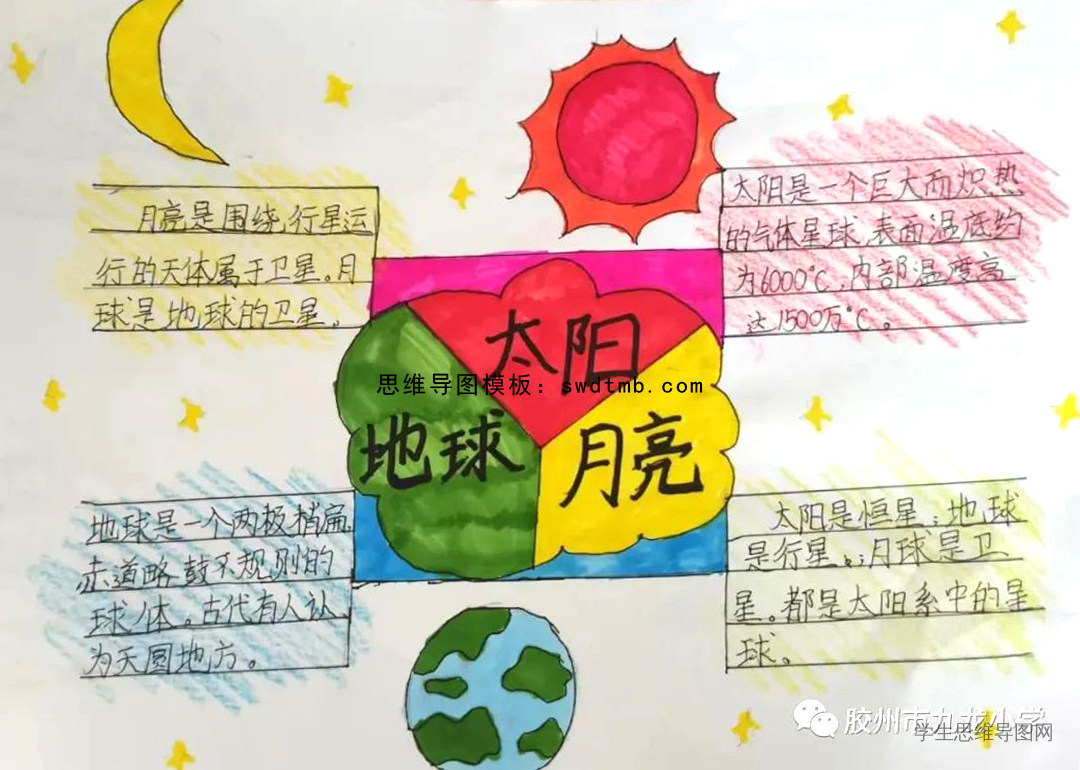 月亮是围绕行星运
行的天体属于卫星。月
球是地球的卫星。
太阳是一个巨大而炽热
的气体星球,表面温底约
为6000°C,内部温度高
达1500万°C。
太阳
思维导图模板：swdtmb.com
地球
月亮
地球是一个两极梢扁
赤道略鼓不规则的
球体。古代有人认
为天圆地方。
太阳是恒星；地球
是行星。；月球是卫
星。都是太阳系中的星
球。
胶州市九龙小学
学生思维导图网